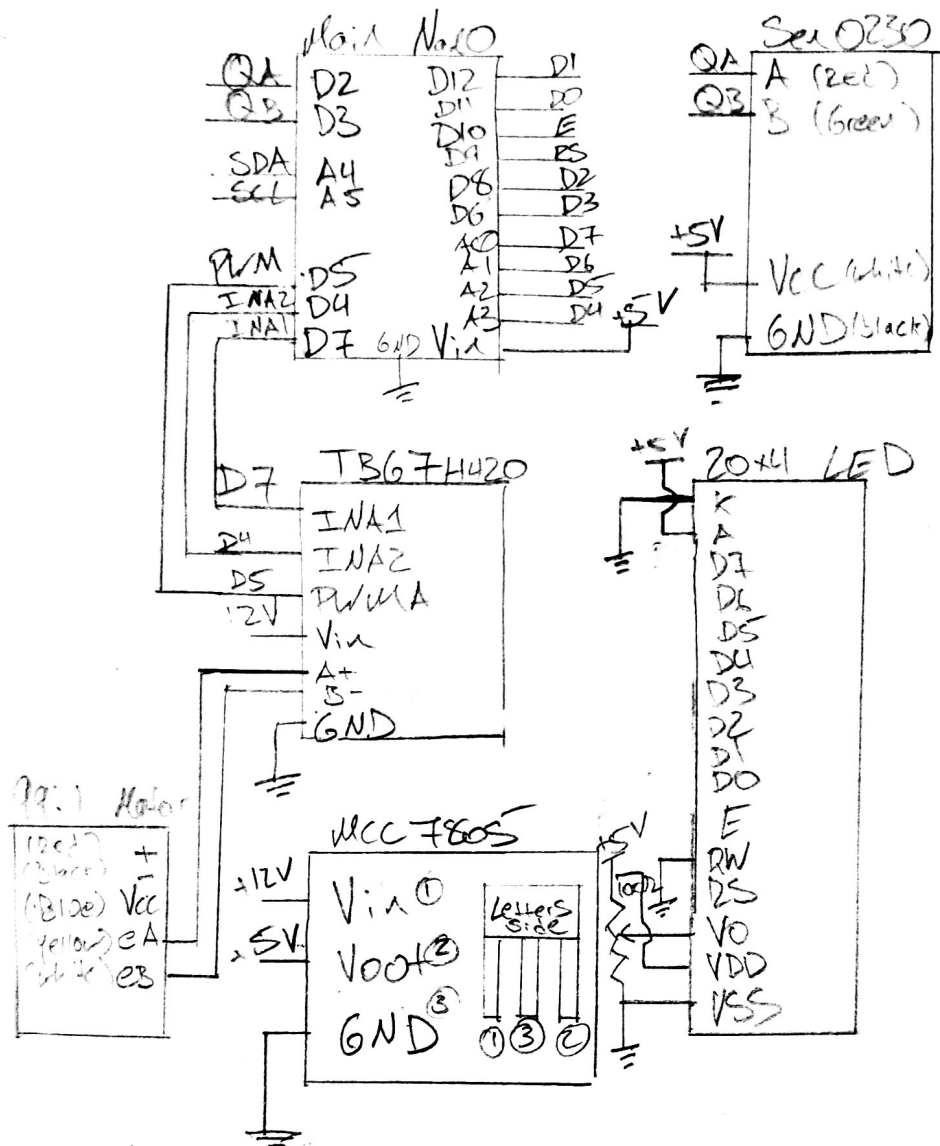 Main Nano
QA D2
QB D3
SDA A4
SCL A5
PWM D5
INA2 D4
INA1 D7
GND
D12 D1
D11 D0
D10 E
D9 RS
D8 D2
D6 D3
A0 D7
A1 D6
A2 D5
A3 D4
Vin +5V
Sen 0230
QA A (Red)
QB B (Green)
+5V
VCC (white)
GND (Black)
TB67H420
D7 INA1
D4 INA2
D5 PWMA
12V Vin
A+
B-
GND
20x4 LED
+5V
K
A
D7
D6
D5
D4
D3
D2
D1
D0
E
RW
RS
VO
VDD
VSS
+5V
99:1 Motor
(Red) +
(Black) -
(Blue) Vcc
(yellow) eA
(white) eB
MCC 7805
+12V Vin ①
+5V Vout ②
GND ③
Letters
side
① ③ ②